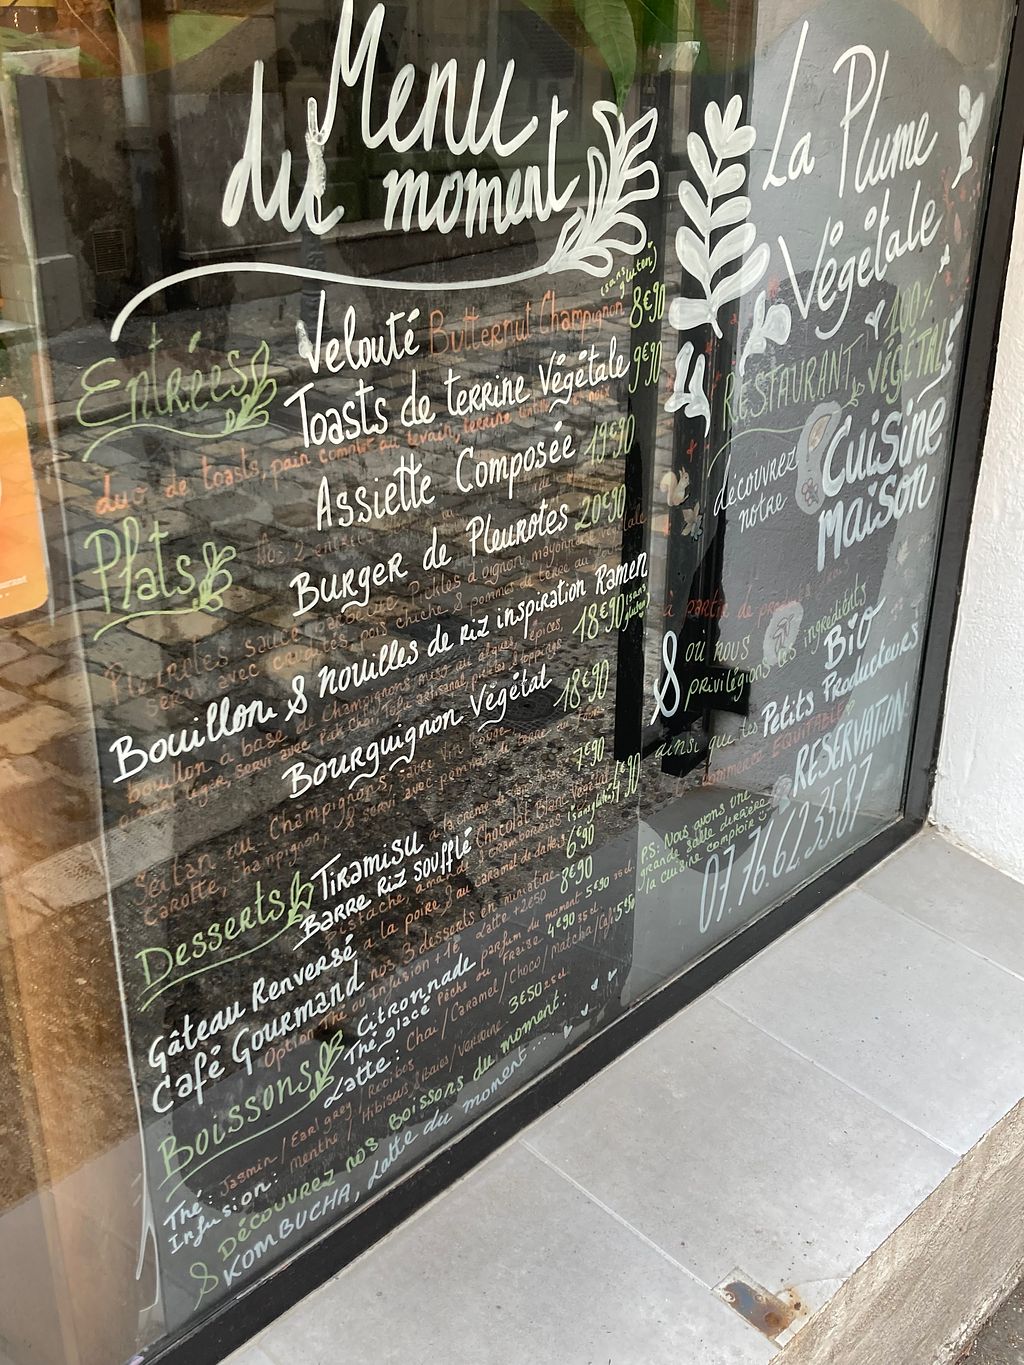 Menu
du moment
Entrées
Velouté Butternut Champignon (sans gluten) 8€90
Toasts de terrine Végétale 9€90
duo de toasts, pain complet au levain, terrine
Plats
Assiette Composée 19€90
Burger de Pleurotes 20€90
Pleurotes sauce barbecue Pickles d'oignon, mayonnaise végétale
servi avec crudités, pois chiche & pommes de terre au four
Bouillon & nouilles de riz inspiration Ramen
18€90 (sans gluten)
bouillon à base de champignons, miso
servi avec Pak Choi, Tofu artisanal
Bourguignon Végétal 18€90
Seitan ou Champignons, avec vin rouge
Carotte, champignon, servi avec pommes de terre au four
Desserts
Tiramisu 7€90
Barre Riz soufflé Chocolat Blanc Végétal (sans gluten) 4€90
Pistache, amande & cramberries
Gâteau Renversé à la poire & au caramel de dattes 6€90
Café Gourmand nos 3 desserts en miniature 8€90
Option Thé ou Infusion +1€ Latte +2€50
Boissons
Citronnade parfum du moment 5€90 35cl.
Thé glacé Pêche ou Fraise 4€90 35cl
Latte: Chai / Caramel / Choco / Matcha / Café 5€50
Thé: Jasmin / Earl grey / Rooibos
Infusion: Menthe / Hibiscus & Baies / Verveine 3€50 25cl.
& Découvrez nos Boissons du moment:
KOMBUCHA, Latte du moment...
La Plume
Végétale
RESTAURANT 100%
VÉGÉTAL
découvrez
notre
Cuisine
maison
à partir de
& où nous
privilégions les ingrédients
Bio
ainsi que les Petits Producteurs
commerce EQUITABLE
RESERVATION
07.76.62.35.87
P.S: Nous avons une
grande salle derrière
la cuisine comptoir :)